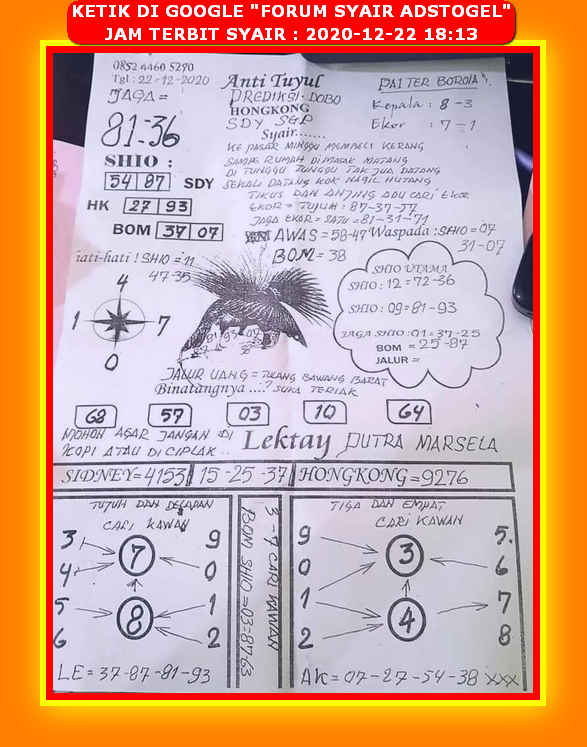 KETIK DI GOOGLE "FORUM SYAIR ADSTOGEL"
JAM TERBIT SYAIR : 2020-12-22 18:13
0852 4460 5290
Tgl : 22-12-2020
JAGA =
81-36
Anti Tuyul
PREDIKSI. DOBO
HONGKONG
SDY SGP
Syair.......
PAITER BORONA
Kepala : 8 - 3
Ekor : 7 - 1
KE PASAR MINGGU MEMBELI KERANG
SAMPE RUMAH DIMASAK MATANG
DI TUNGGU TUNGGU TAK JUA DATANG
SEKALI DATANG KOK NAGIL HUTANG
TIKUS DAN ANJING ADU CARI EKOR
EKOR = TUJUH : 87-37-57
JAGA EKOR = SATU = 81-31-71
SHIO :
54 87 SDY
HK 27 93
BOM 37 07
AWAS = 58-47 Waspada : SHIO = 07
31-07
BOM = 38
iati-hati ! SHIO = 11
47-35
4
1 7
0
SHIO UTAMA
SHIO : 12 = 72-36
SHIO : 09 = 81-93
JAGA SHIO : 01 = 37-25
BOM = 25-87
JALUR =
JALUR UANG = TULANG BAWANG BARAT
Binatangnya ....? SUKA TERIAK
68 57 03 10 64
MOHON AGAR JANGAN DI
KOPI ATAU DI CIPLAK ..
Lektay PUTRA MARSELA
SIDNEY = 4153 15 - 25 - 37 HONGKONG = 9276
TUJUH DAN DELAPAN
CARI KAWAN
3 7 9
4 0
5 8 1
6 2
LE = 37-87-81-93
3 - 7 CARI KAWAN
BOM SHIO = 03 = 87.63
TIGA DAN EMPAT
CARI KAWAN
9 3 5.
0 6
1 4 7
2 8
AK = 07-27-54-38 XXX